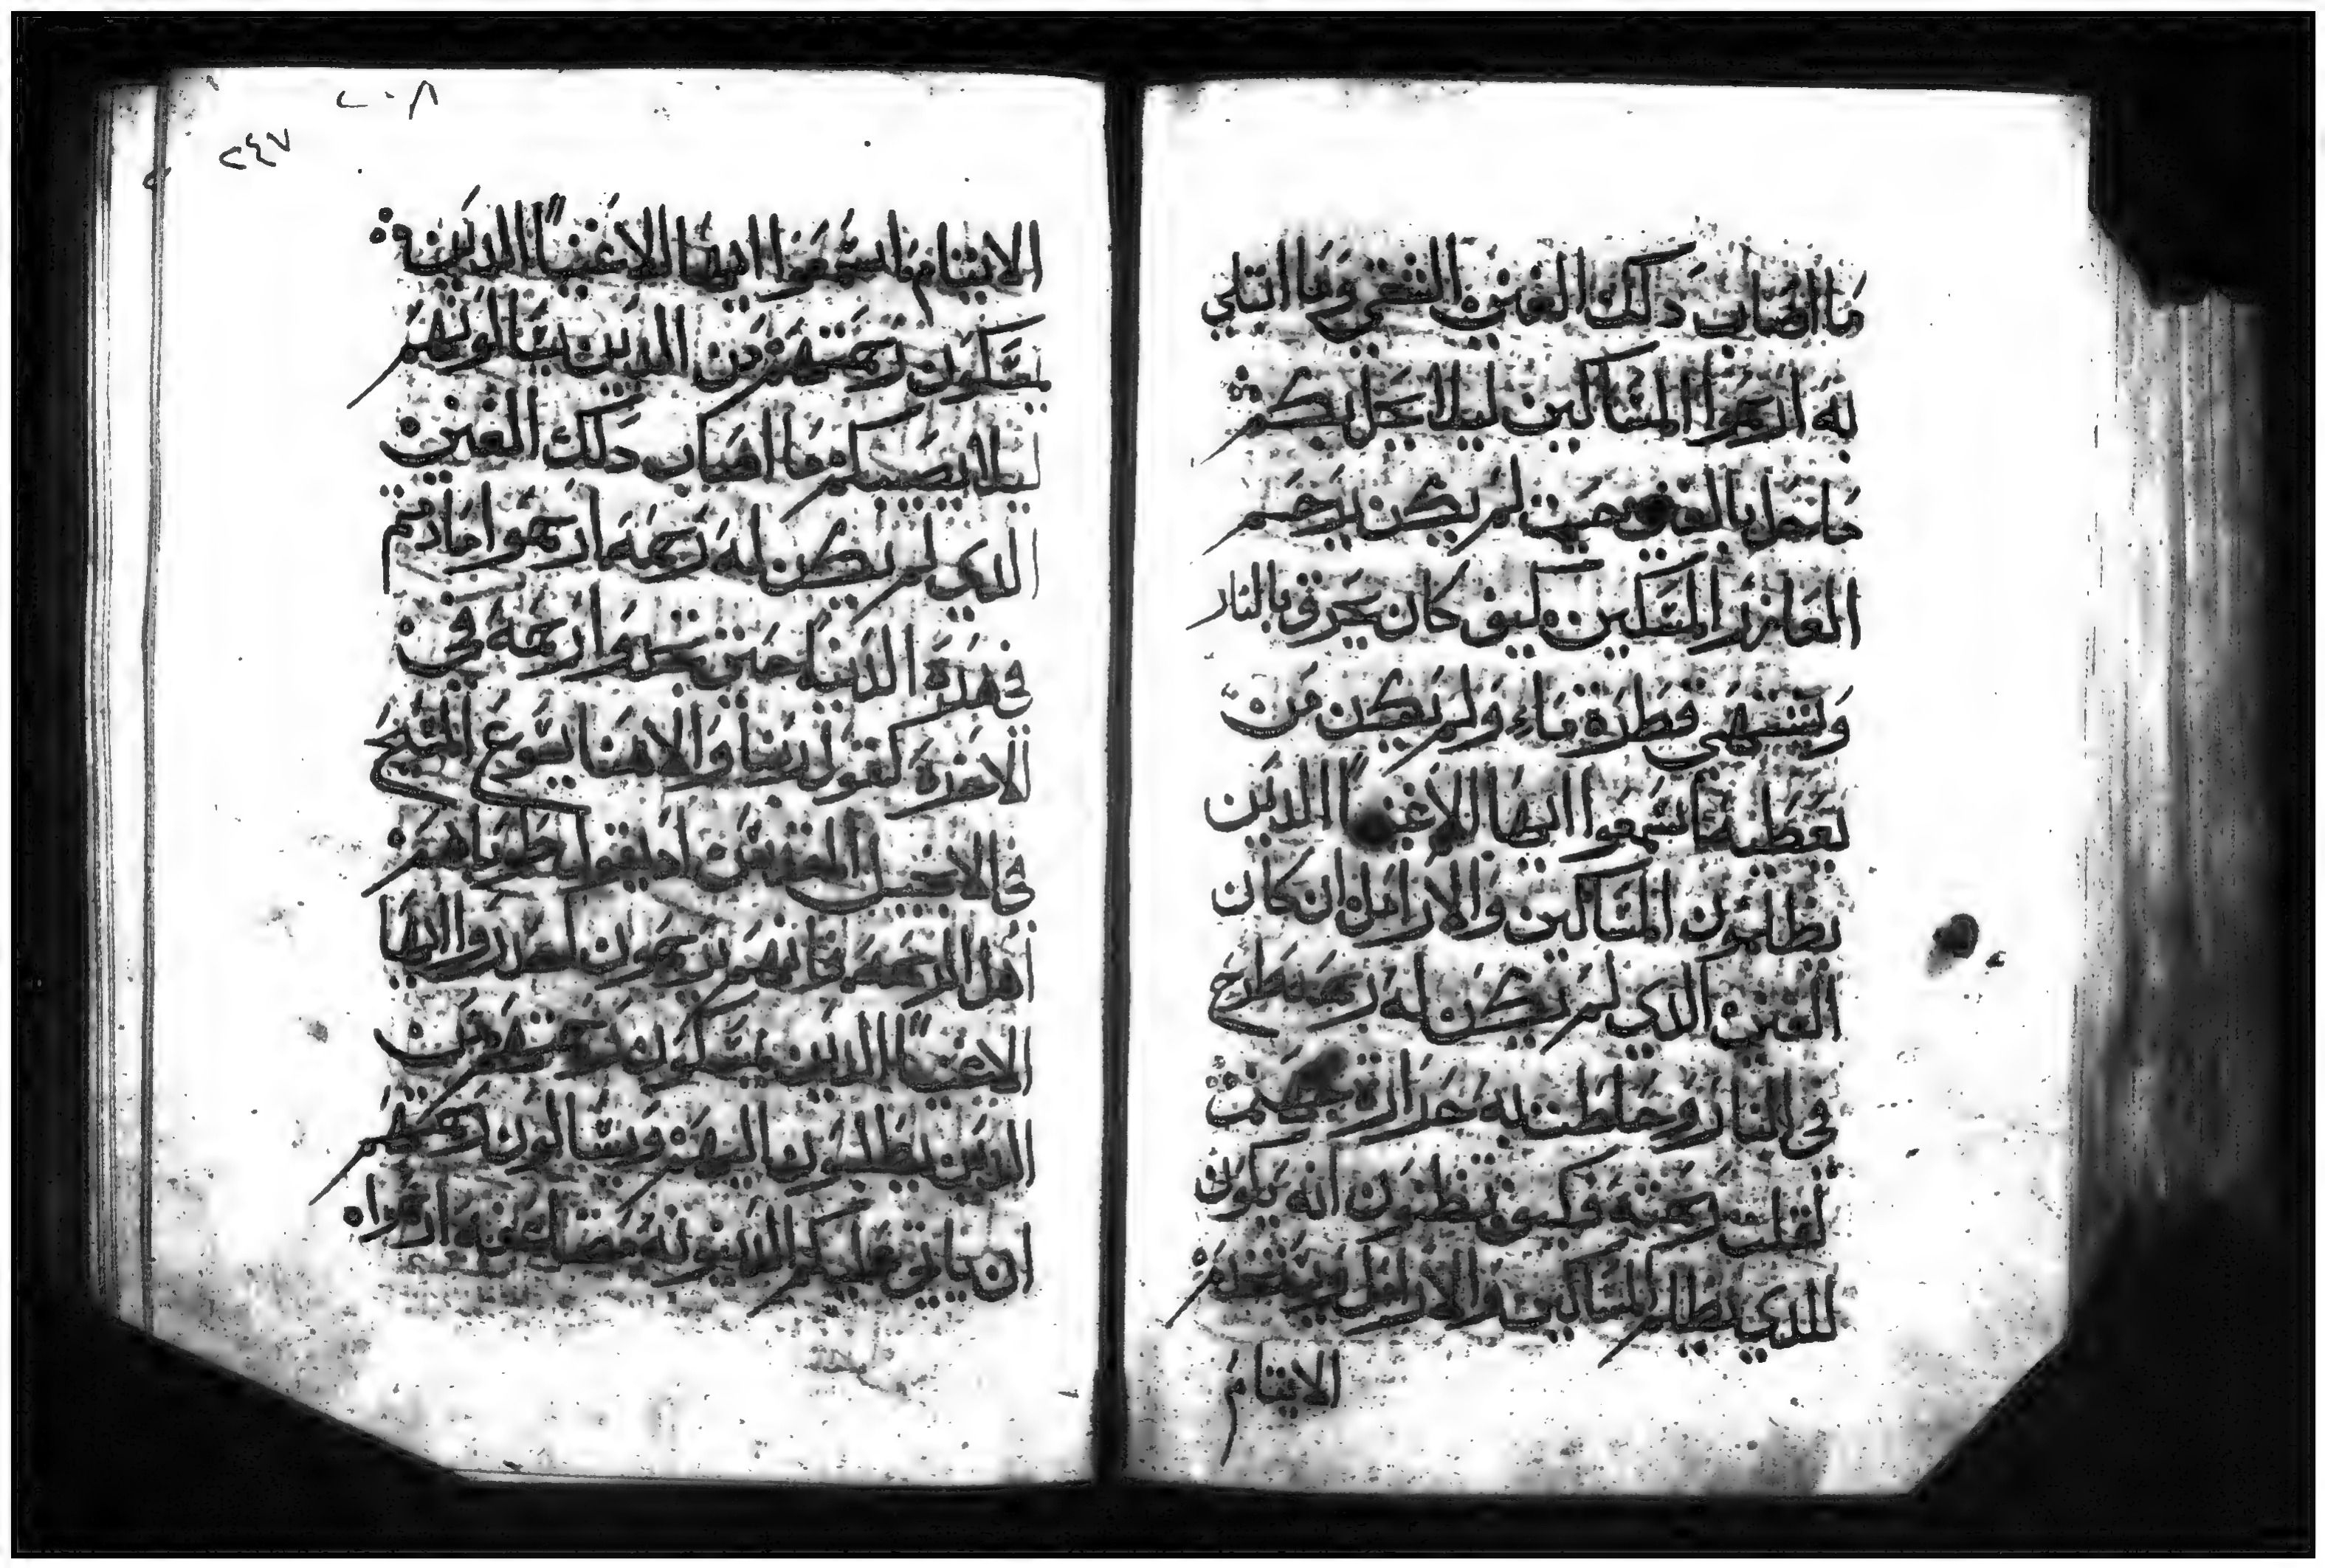 ما اصاب دلك الغني الشقي وما ابتلي
به ارحموا المساكين ليلا يحل بكم
ما حل بالغني حيت لم يكن يرحم
العازر المسكين كيف كان يحرق بالنار
ويشتهي قطرة ماء ولم يكن من
يعطيه اسمعوا ايها الاغنيا الدين
يظلمون المساكين والارامل ان كان
الغني الدي لم يكن له رحمه طرح
في النار وحاطت به حرارة جهنم
لقلت رحمته وكيف تظنون انه يكون
للدي يظلم المساكين والارامل
الايتام
الايتام اسمعوا ايها الاغنيا الدين
يمسكون رحمتهم من الدين يسالونهم
ليلا يصيبكم ما اصاب دلك الغني
الدي لم يكن له رحمة ارحموا مادمتم
في هده الدنيا حتي رحمة في
الاخرة كقول ربنا والاهنا يسوع المسيح
في الانجيل المقدس اد يقول طوباهم
اهل الرحمة فانهم يرحمون احدروا ايها
الاغنيا الدين يمسكون رحمتهم من
الدين يطلبون اليهم ويسالون رحمتهم
ان ياتي عليكم
٢٠٨
٢٤٧